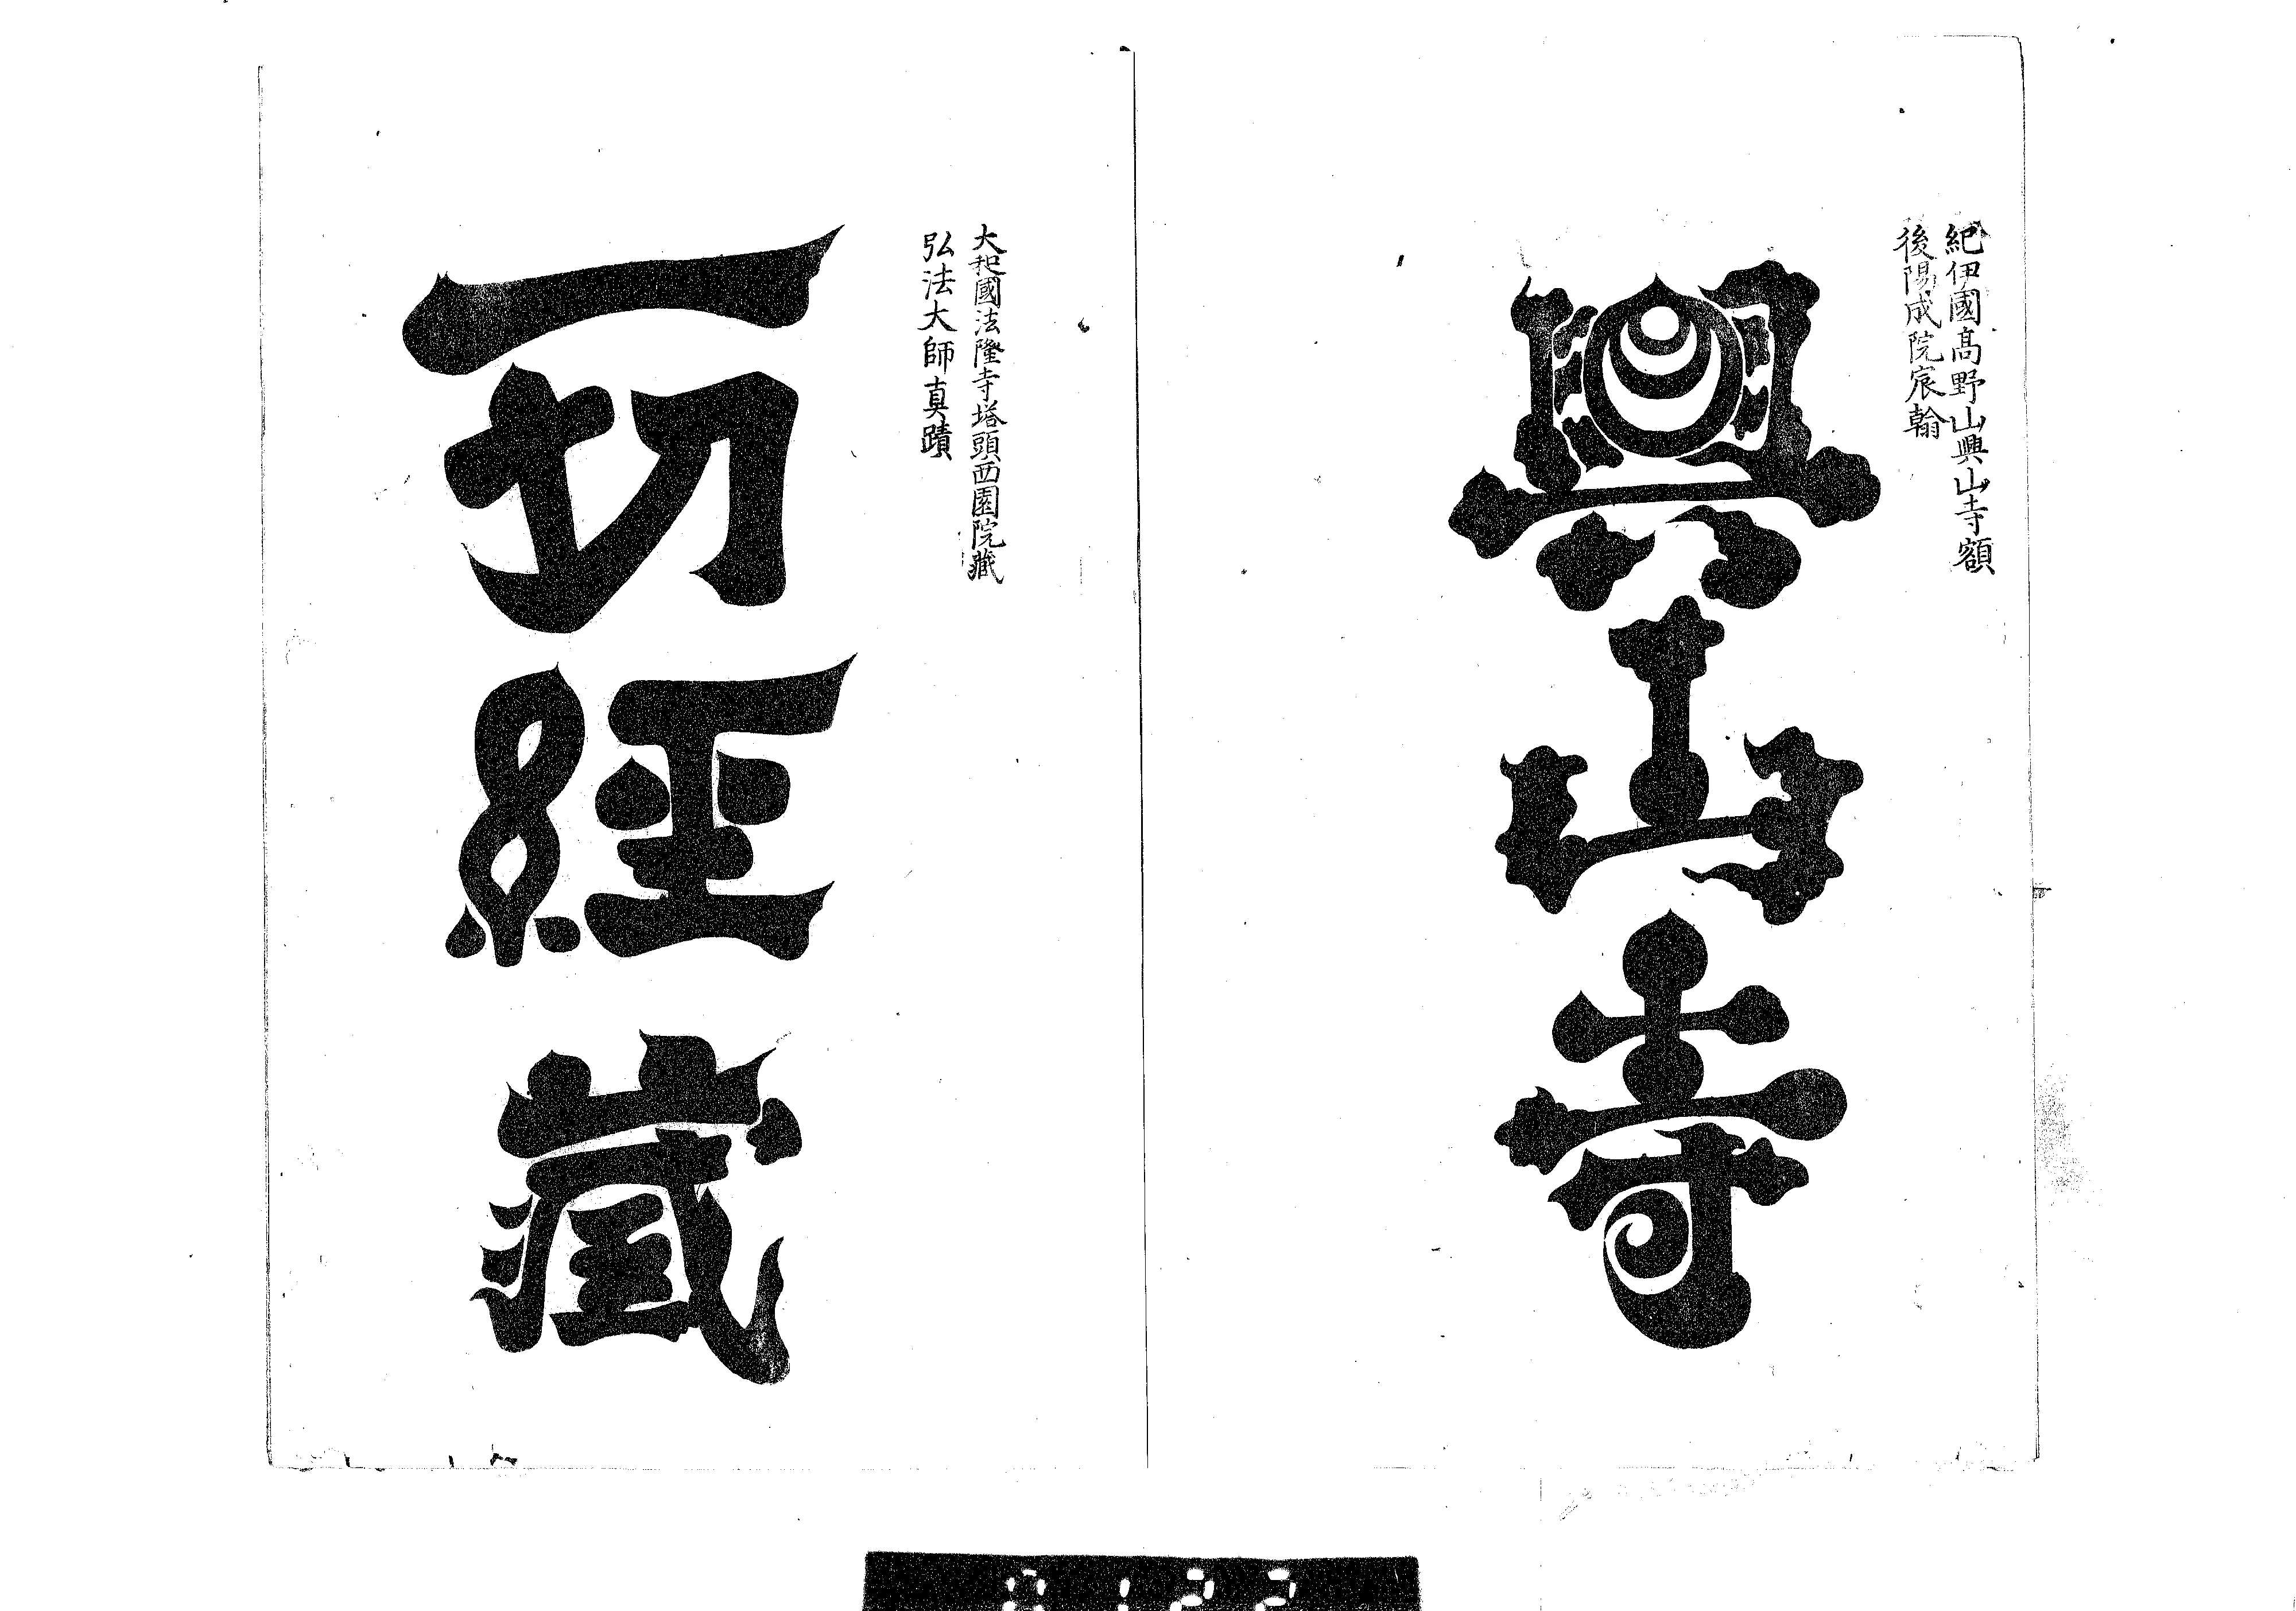 紀伊國髙野山興山寺額
後陽成院宸翰
興山寺
大和國法隆寺塔頭西園院藏
弘法大師真蹟
一切經藏
0122